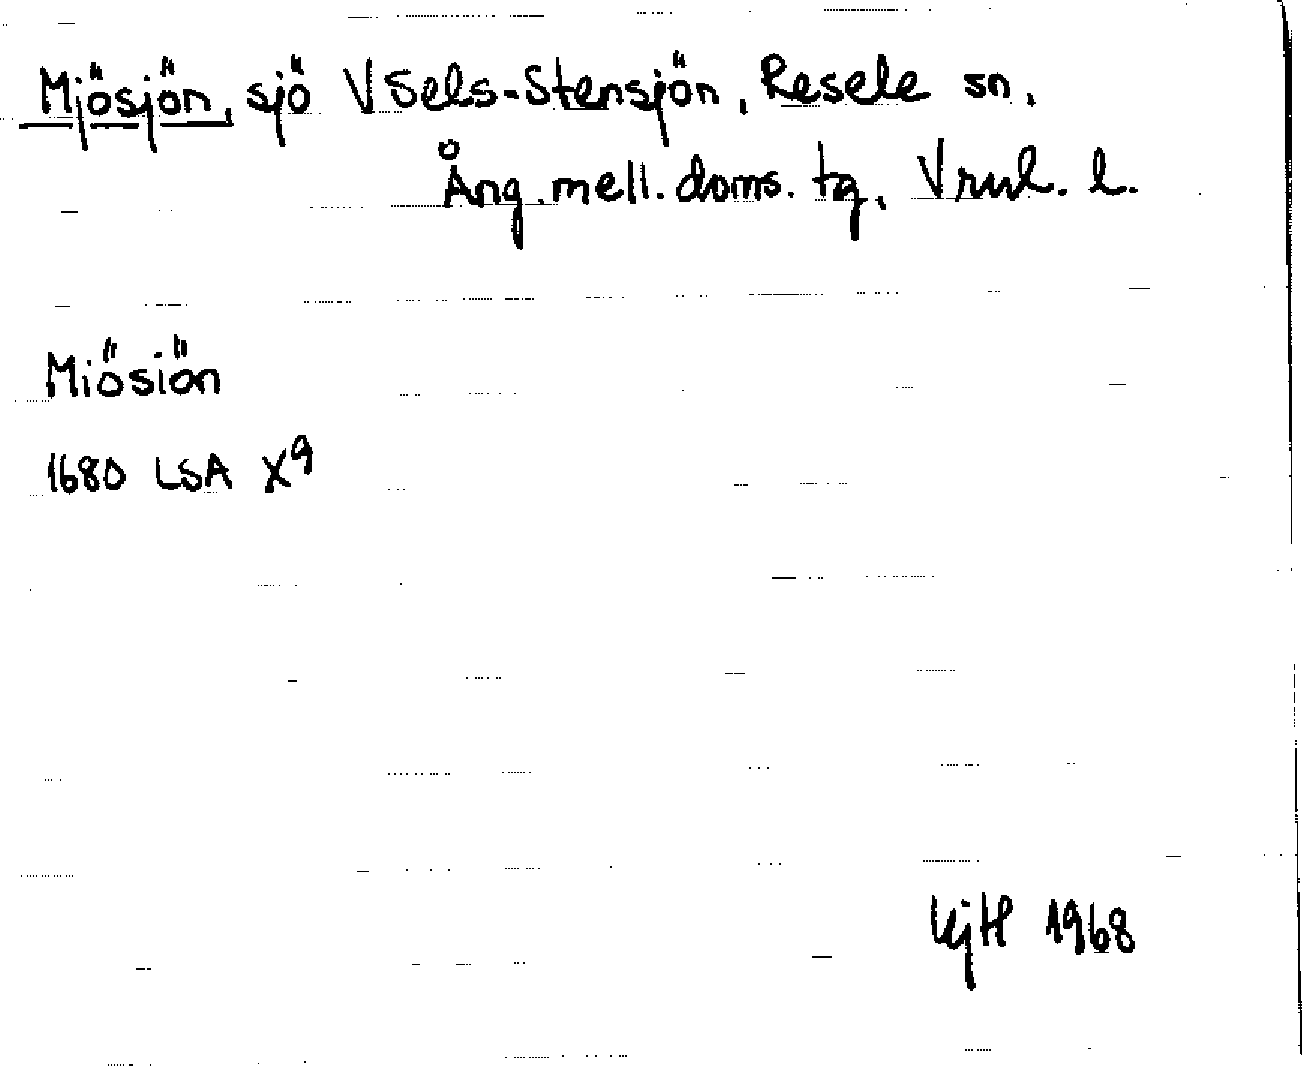 Mjösjön, sjö V Sels-Stensjön, Resele sn,
Ång. mell. doms. tg, Vrnl. l.
Miösiön
1680 LSA X9
1968